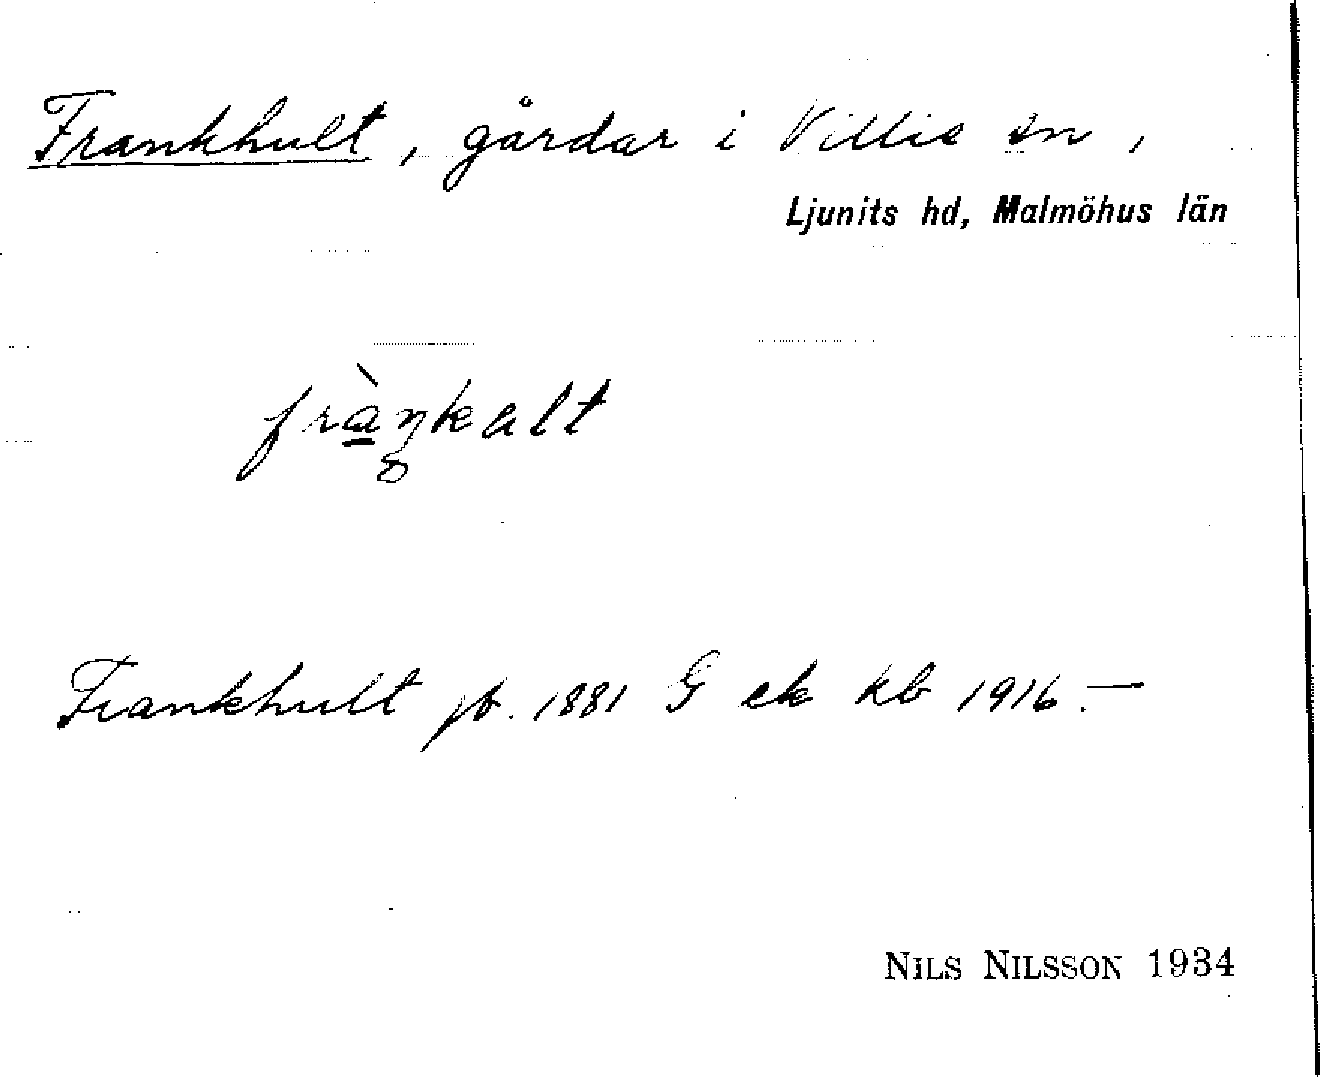 Frankhult, gårdar i Villie sn,
Ljunits hd, Malmöhus län
fràŋkalt
Frankhult jb. 1881 G ek kb 1916.—
NILS NILSSON 1934